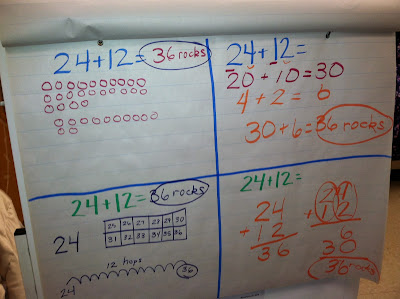 24+12= 36 rocks
24+12=
20+10=30
4+2= 6
30+6=36 rocks
24+12= 36 rocks
24
25 26 27 28 29 30
31 32 33 34 35 36
12 hops
24 36
24+12=
24
+ 12
36
24
+ 12
6
30
36 rocks